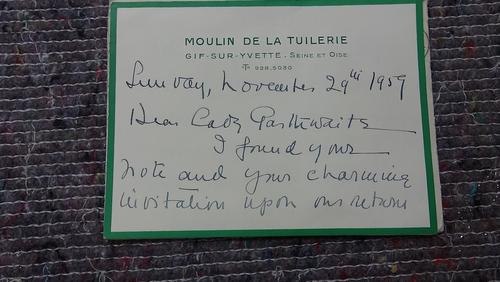 MOULIN DE LA TUILERIE
GIF-SUR-YVETTE. SEINE ET OISE
928.5030
Sunday, November 29th 1959
Dear Lady Garthwaite
I found your
note and your charming
invitation upon our return